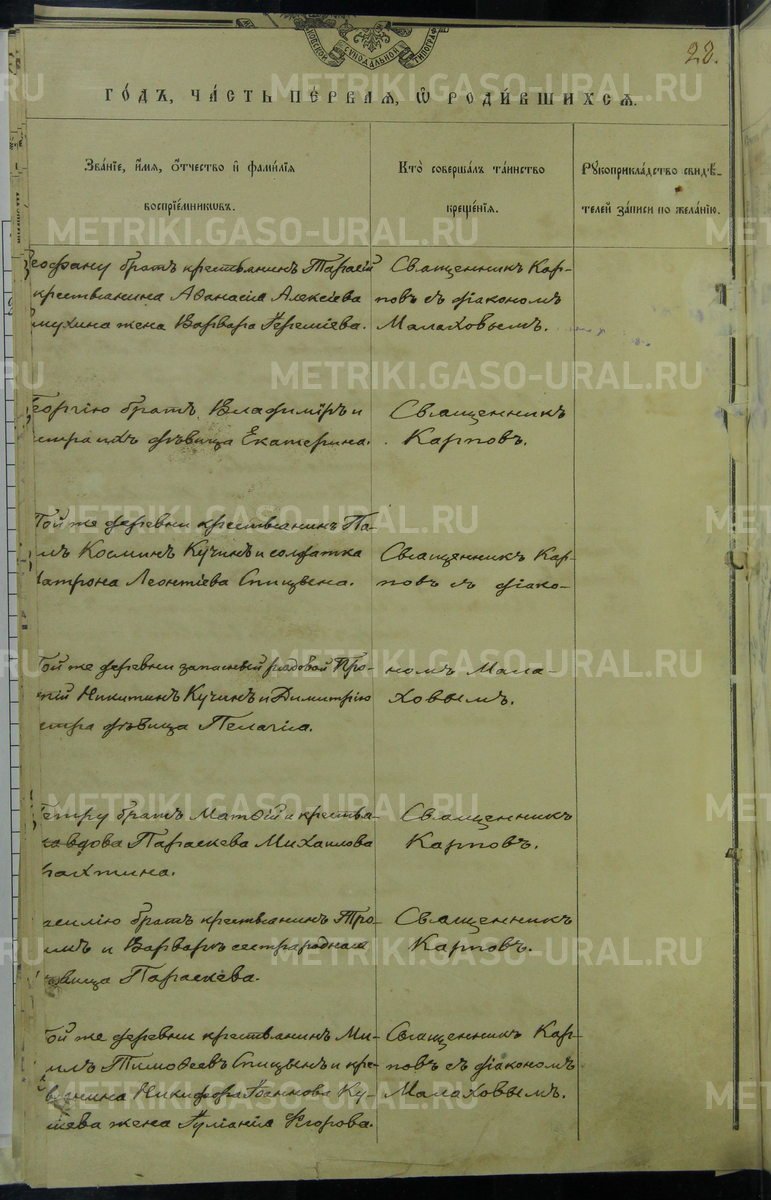 СѴНОДАЛЬНОЙ ТИПОГРАФ
28.
ГОДЪ, ЧАСТЬ ПЕРВАЯ, Ѡ РОДИВШИХСЯ.
Званіе, имя, отчество и фамилія
воспріемниковъ.
Кто совершалъ таинство
крещенія.
Рукоприкладство свидѣ-
телей записи по желанію.
еофану братъ крестьянинъ Тарасій
крестьянина Аѳанасія Алексѣева
мухина жена Варвара Іереміева.
Священникъ Кар-
повъ съ діакономъ
Малаховымъ.
Георгію братъ Владиміръ и
стра ихъ дѣвица Екатерина.
Священникъ
Карповъ.
Той же деревни крестьянинъ Па-
лъ Космин Кучинъ и солдатка
Матрона Леонтіева Спицына.
Священникъ Кар-
повъ съ діако-
Той же деревни запасный рядовой Про-
пій Никитинъ Кучинъ и Димитрію
стра дѣвица Пелагія.
номъ Мала-
ховымъ.
Петру братъ Матѳій и крестья-
вдова Параскева Михаилова
Священникъ
Карповъ.
асилію братъ крестьянинъ Тро-
имъ и Варварѣ сестра родная
вица Параскева.
Священникъ
Карповъ.
Той же деревни крестьянинъ Ми-
илъ Тимоѳеевъ Спицынъ и кре-
янина Никифора Іоаннова Ку-
жена Іуліанія Егорова.
Священникъ Кар-
повъ съ діакономъ
Малаховымъ.
METRIKI.GASO-URAL.RU